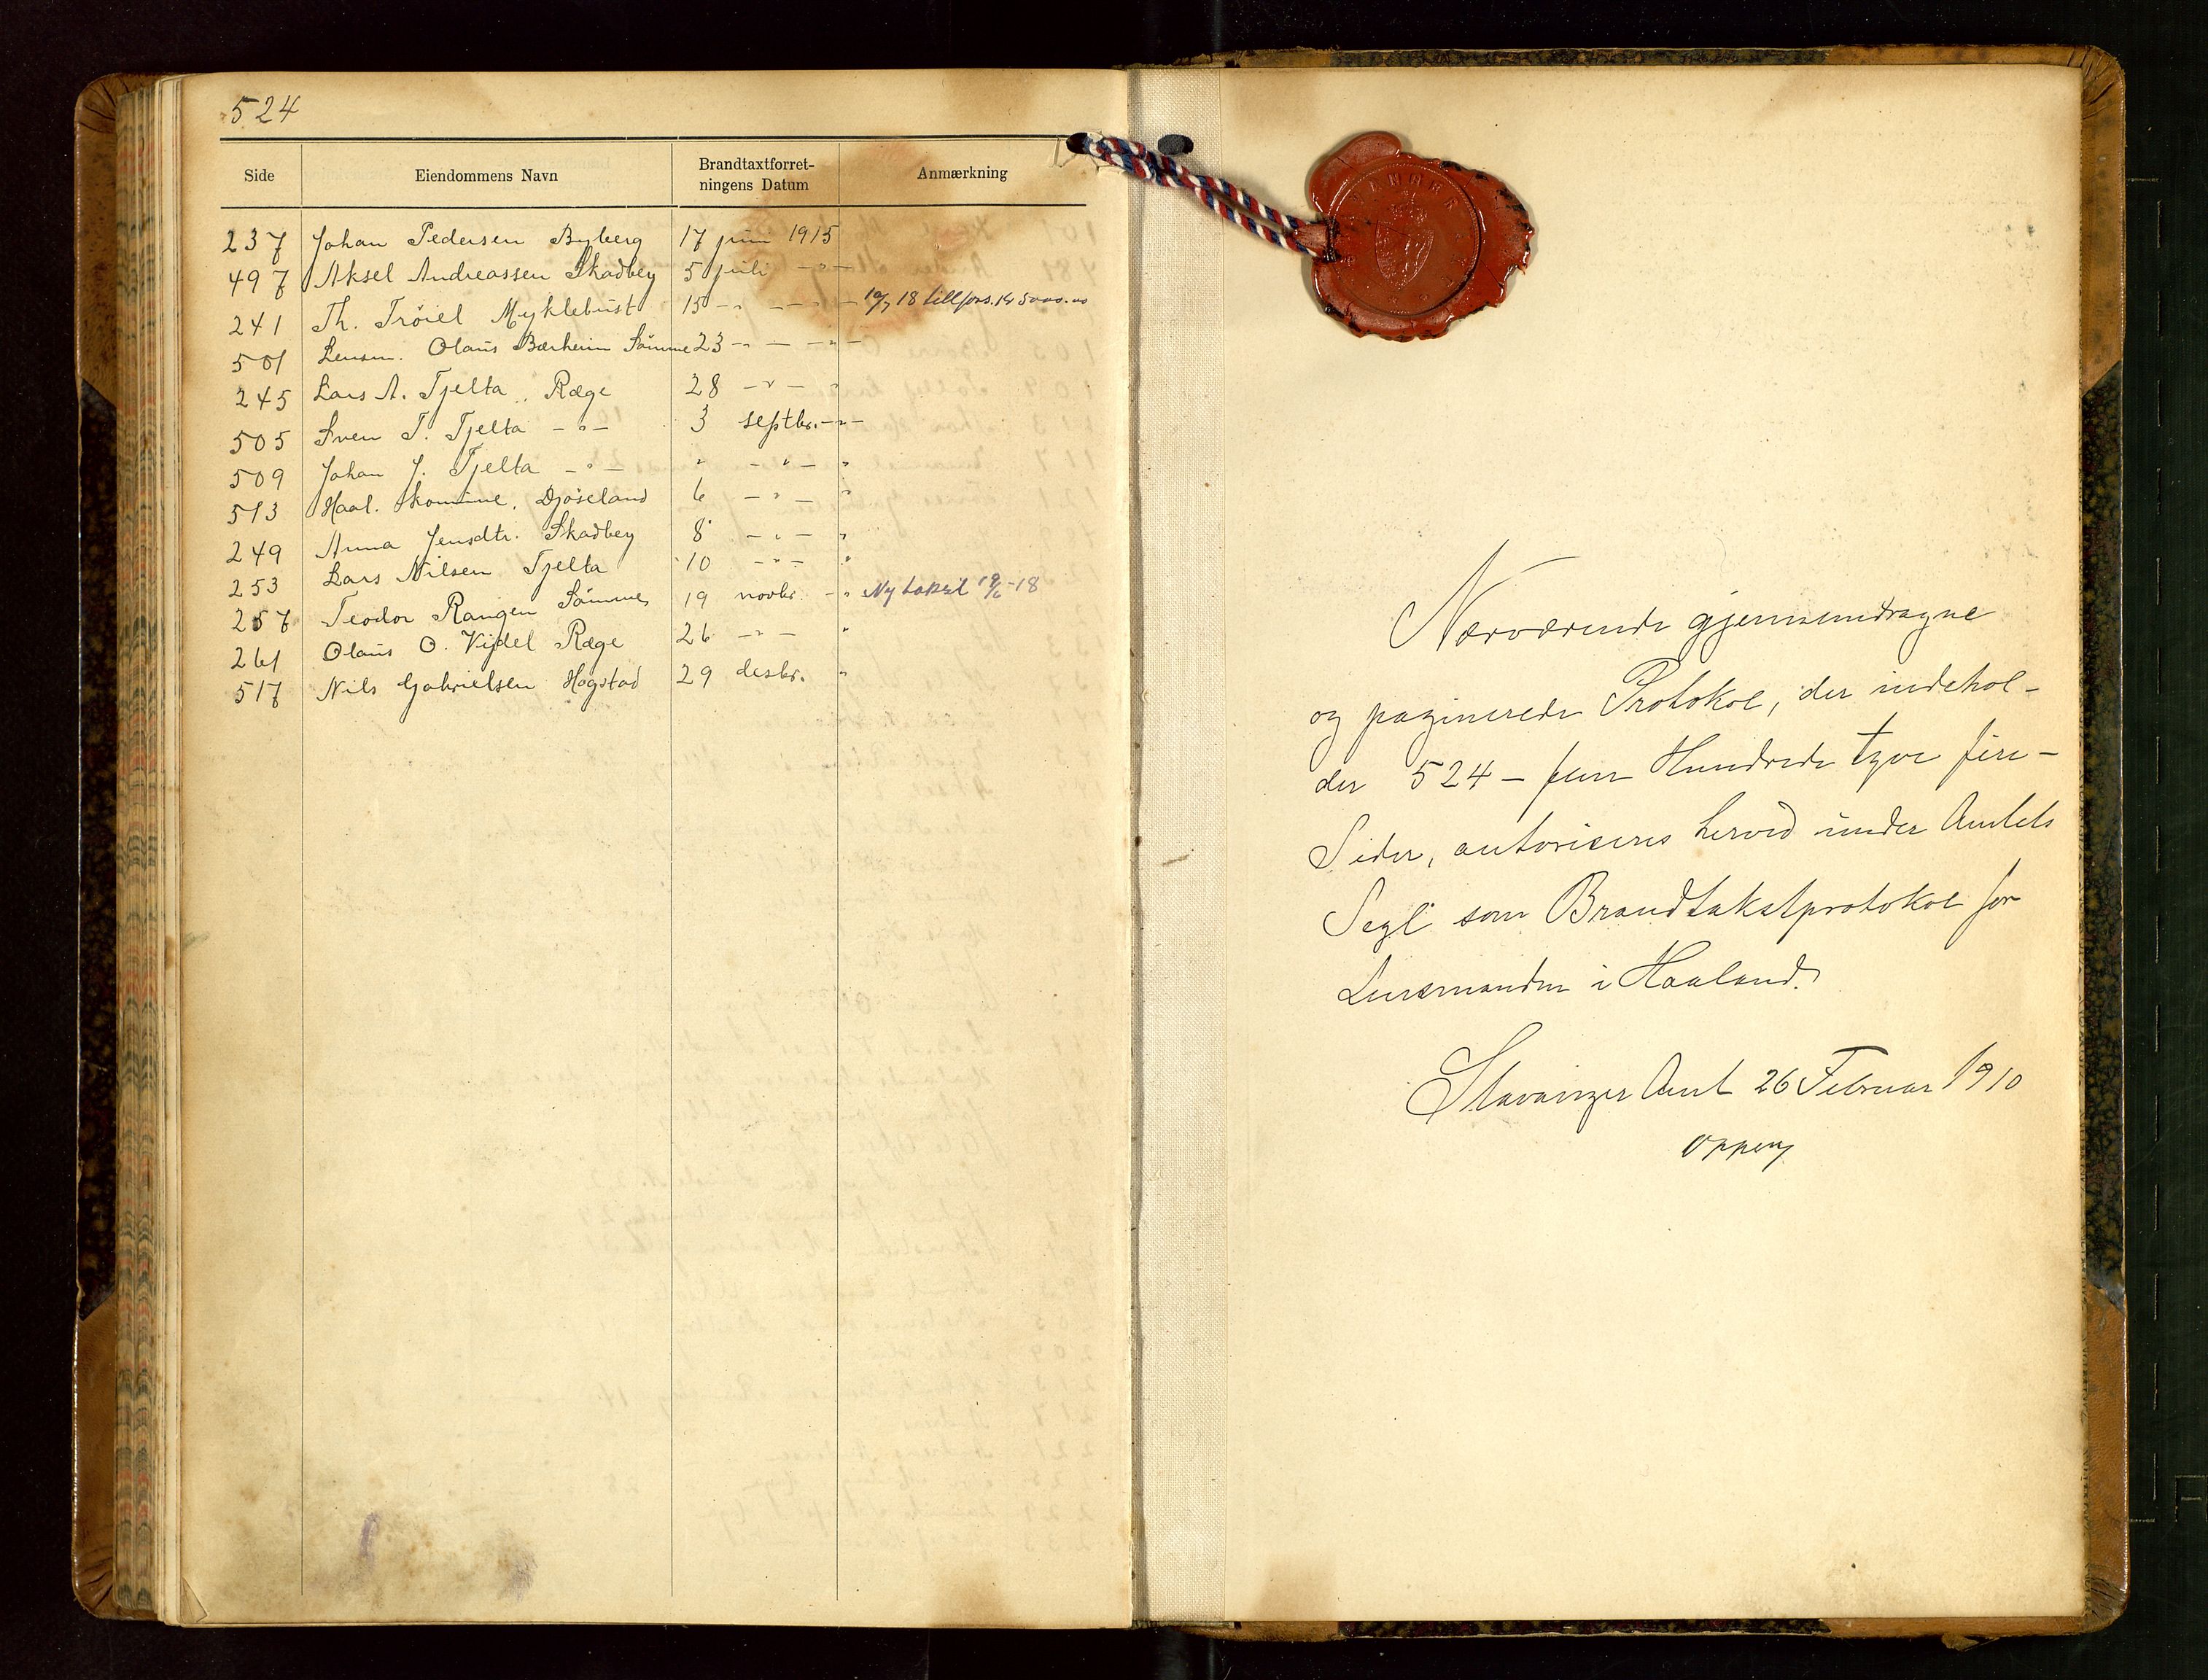 524
Side Eiendommens Navn Brandtaxtforret-
ningens Datum Anmærkning
237 Johan Pedersen Byberg 17 juni 1915
497 Aksel Andreassen Skadbey 5 juli -"-
241 Th. Trøiel Myklebust 15 -"- -"- 18 tillfors. kr 5000.00
501 Lensm. Olaus Bærheim Sømme 23 -"- -"-
245 Lars A. Tjelta, Ræge 28 -"- "
505 Sven T. Tjelta -"- 3 septbr. -"-
509 Johan J. Tjelta -"- " -"- "
513 Haal. komune, Djøseland 6 -"- "
249 Anna Jensdtr. Skadbey 8 -"- "
253 Lars Nilsen Tjelta 10 -"- "
257 Teodor Rangen Sømme 19 novbr. -" Ny takst 19/6-18
261 Olaus O. Vigdel Ræge 26 -"- "
517 Nils Gabrielsen Hogstad 29 desbr. "
Nærværende gjennemdragne
og paginerede Protokol, der indehol-
der 524 - fem Hundrede tyve fire -
Sider, autoriseres herved under Amtets
Segl som Brandtakstprotokol for
Lensmanden i Haaland.
Stavanger Amt 26 Februar 1910